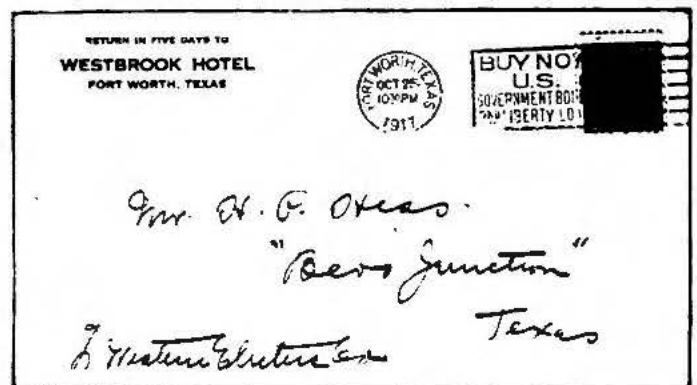 RETURN IN FIVE DAYS TO
WESTBROOK HOTEL
FORT WORTH, TEXAS
FORT WORTH, TEXAS
OCT 25
1030PM
1917
BUY NOW
U.S.
GOVERNMENT
LIBERTY LO
Mr. H.
"Bevo Junction"
Texas
Western